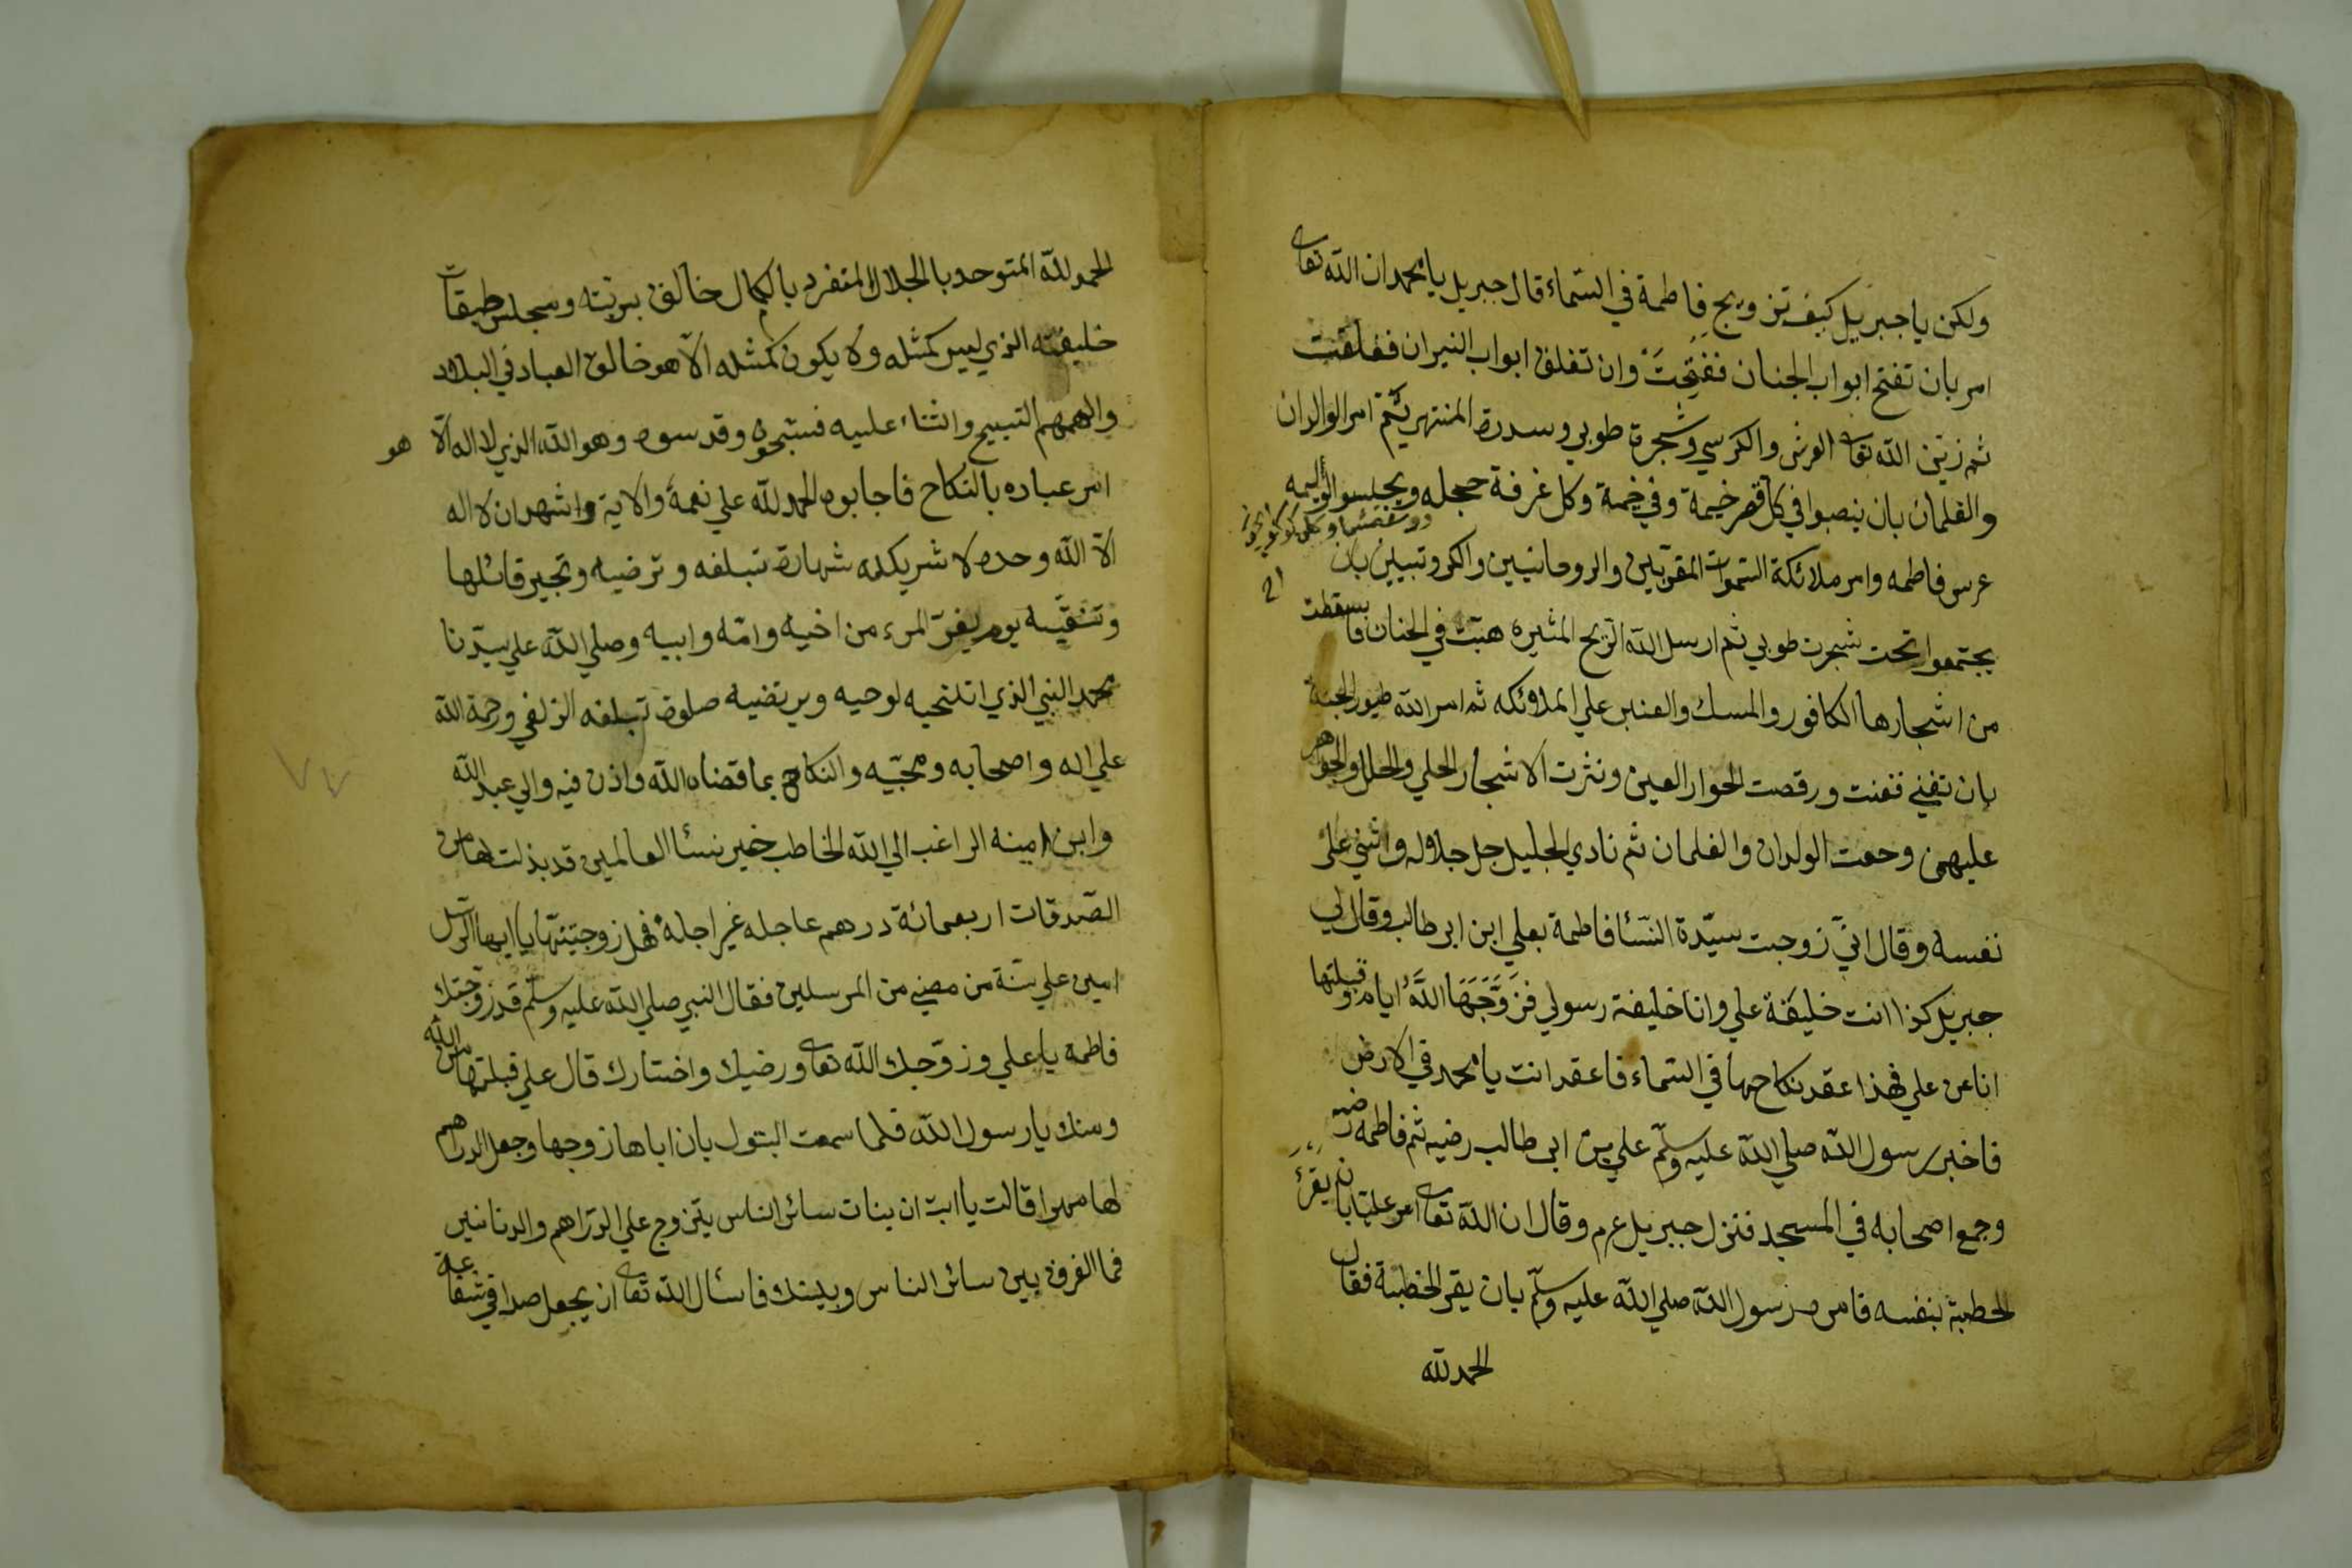 ولكن يا جبريل كيف تزويج فاطمة في السّماء قال جبريل يا محمد ان الله تعا
امر بان تفتح ابواب الجنان ففتِحَتْ وان تغلق ابواب النيران فغلقت
ثم زيّن الله تعا العرش والكرسي وشجرة طوبي وسدرة المنتهي ثم امر الوالدان
والغلمان بان ينصبوا في كل قصر خيمة وفي خيمة وكل غرفة حجله ويجلسوا لوليمه
عرس فاطمه وامر ملائكة السّموات المقرّبين والروحانيين والكروتبيين بان
يجتمعوا تحت شجرت طوبي ثم ارسل الله الرّيح المثيره هبّت في الجنان فاسقطت
من اشجارها الكافور والمسك والعنبر علي الملائكه ثم امر الله طيور الجنة
بان تغني فغنت ورقصت الحوار العين ونثرت الاشجار الحلي والحلل والجواهر
عليهن وحعت الولدان والغلمان ثم نادي الجليل جل جلاله واثني علي
نفسه وقال انّي زوجت سيّدة النسّا فاطمة بعلي ابن ابي طالب وقال لي
جبريل كذا انت خليفة علي وانا خليفة رسولي فزَوَّجَهَا اللهُ اياه وقبلتها
انا عن علي فهذا عقد نكاحها في السّماء فاعقد انت يا محمد في الارض
فاخبر رسول الله صلي الله عليه وسلّم علي بن ابي طالب رضيه ثم فاطمه رضيه
وجمع اصحابه في المسجد فنزل جبريل عم وقال ان الله تعا امر عليّا بان يقرَءَ
الخطبة بنفسه فامر رسول الله صلي الله عليه وسلّم بان يقر الخطبة فقال
الحمد لله
الحمد لله المتوحد بالجلال المتفرد بالكمال خالق بريته ومجلس طبقات
خليقته الذي ليس كمثله ولا يكون كمثله الّا هو خالق العباد في البلاد
والهمهم التسبيح واثناء عليه فسبّحوه وقدسوه وهو الله الذي لا اله الّا هو
امر عباده بالنكاح فاجابوه الحمد لله علي نعمهٔ والاية واشهد ان لا اله
الّا الله وحده لا شريك له شهادة تبلغه وترضيه وتجير قائلها
وتنقّيه يوم يفرّ المرء من اخيه وامّه وابيه وصلي الله علي سيّدنا
محمد النبي الذي انتخبه لوحيه ويرتضيه صلوة تبلغه الزلفي ورحمة الله
علي اله واصحابه ومحبّيه والنكاح بما قضاه الله واذن فيه والي عبد الله
وابن امينه الراغب الي الله الخاطب خير نسأ العالمين قد بذلت لها من
الصّدقات اربعمائة درهم عاجله غير اجلة فهل زوجتنها يا ايها الرّسل
امين علي سنة من مضي من المرسلين فقال النبي صلي الله عليه وسلّم قد زوّجتك
فاطمه يا علي وزوّجك الله تعا ورضيك واختارك قال علي قبلتها من الله
ومنك يا رسول الله فلما سمعت البتول بان اباها زوجها وجعل الدراهم
لها مهرا قالت يا ابت ان بنات سائر الناس يتزوج علي الدّراهم والدنانير
فما الفرق بين سائر الناس وبينك فاسأل الله تعا ان يجعل صداقي شفاعة